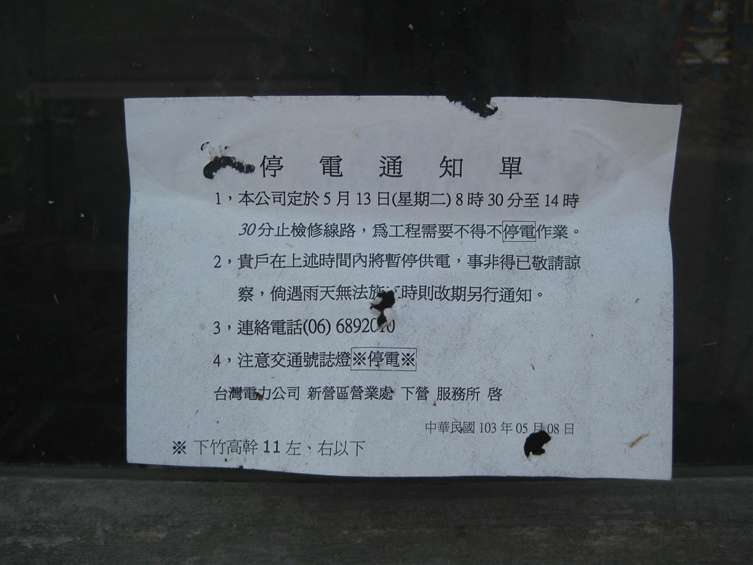 停電通知單
1，本公司定於 5 月 13 日(星期二) 8 時 30 分至 14 時
30 分止檢修線路，為工程需要不得不停電作業。
2，貴戶在上述時間內將暫停供電，事非得已敬請諒
察，倘遇雨天無法施 時則改期另行通知。
3，連絡電話(06)
4，注意交通號誌燈※停電※
台灣電力公司 新營區營業處 下營 服務所 啓
中華民國 103 年 05 月 08 日
※ 下竹高幹 11 左、右以下